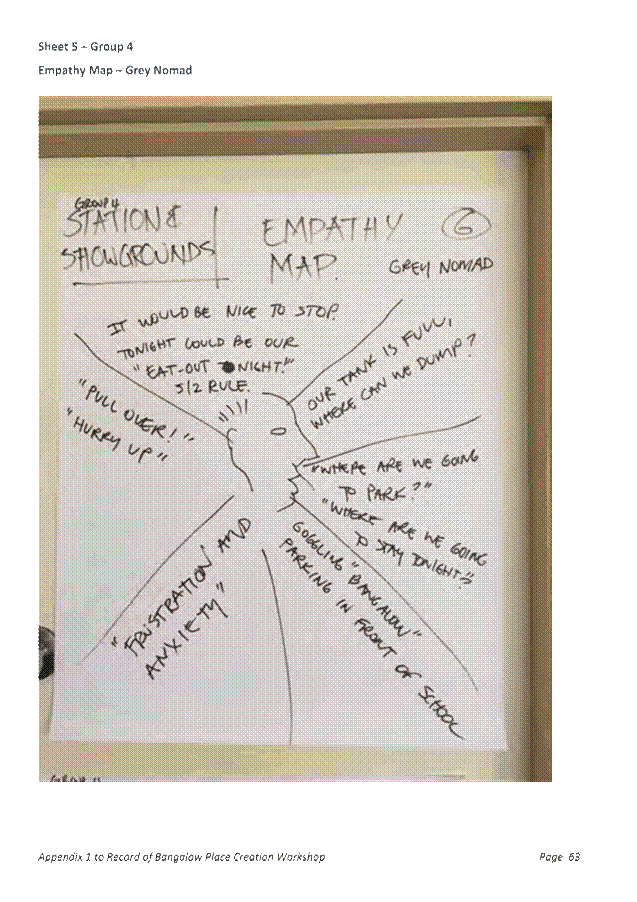 Sheet 5 – Group 4
Empathy Map – Grey Nomad
GROUP 4
STATION &
SHOWGROUNDS
EMPATHY
MAP.
6
GREY NOMAD
IT WOULD BE NICE TO STOP.
TONIGHT COULD BE OUR
"EAT-OUT NIGHT!"
5/2 RULE.
OUR TANK IS FULL,
WHERE CAN WE DUMP?
"PULL OVER!"
"HURRY UP"
"WHERE ARE WE GOING
TO PARK?"
"WHERE ARE WE GOING
TO STAY TONIGHT?"
"FRUSTRATION AND
ANXIETY"
GOGGLING "BANGALOW"
PARKING IN FRONT OF SCHOOL
Appendix 1 to Record of Bangalow Place Creation Workshop
Page 63